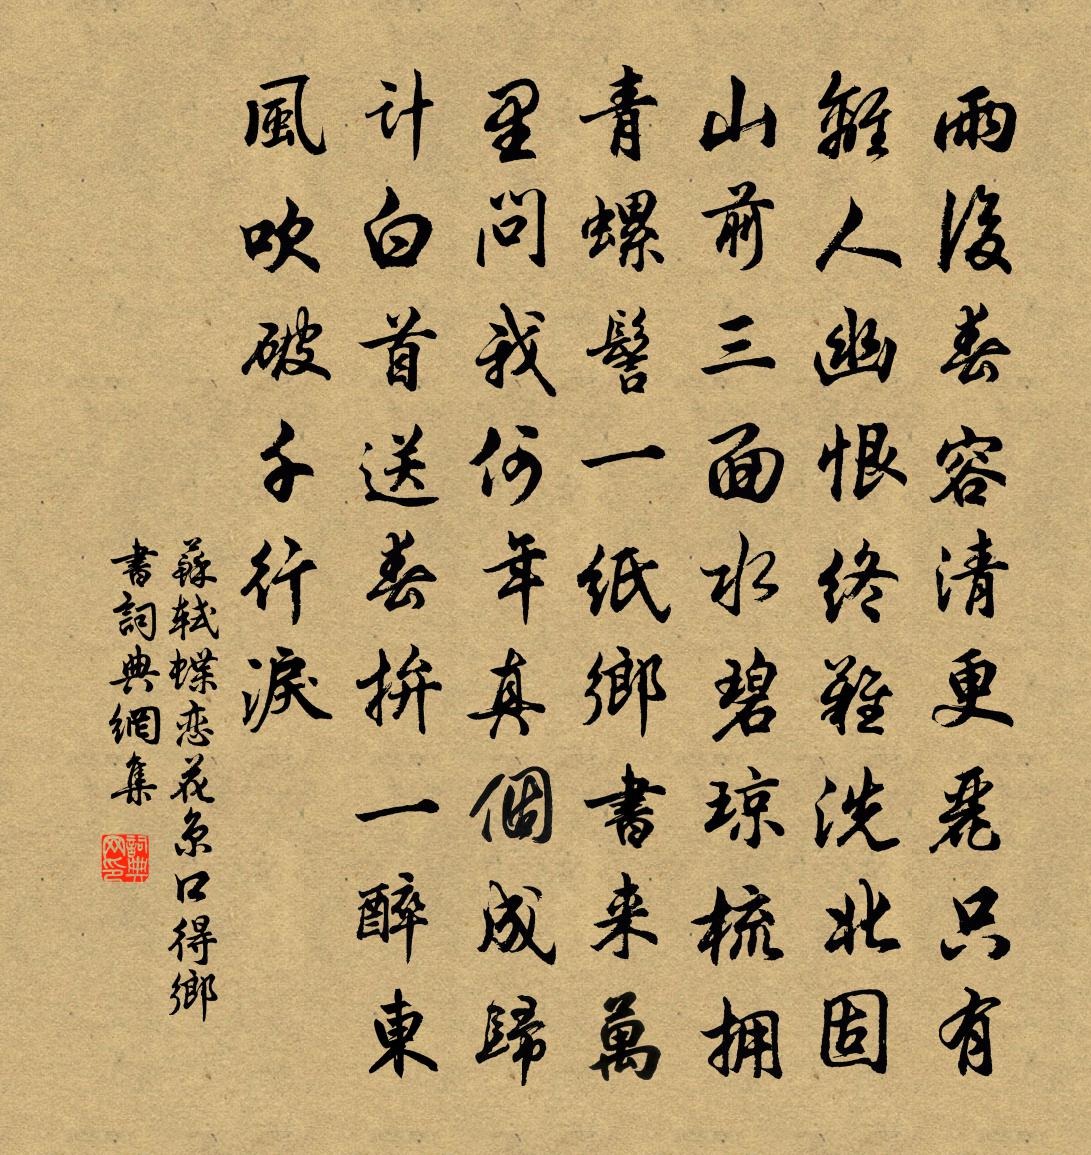 雨後春容清更麗只有
離人幽恨終難洗北固
山前三面水碧瓊梳拥
青螺髻一紙鄉書来萬
里問我何年真個成歸
计白首送春拚一醉東
風吹破千行淚
蘇轼蝶恋花京口得鄉
書詞典網集
詞典网印